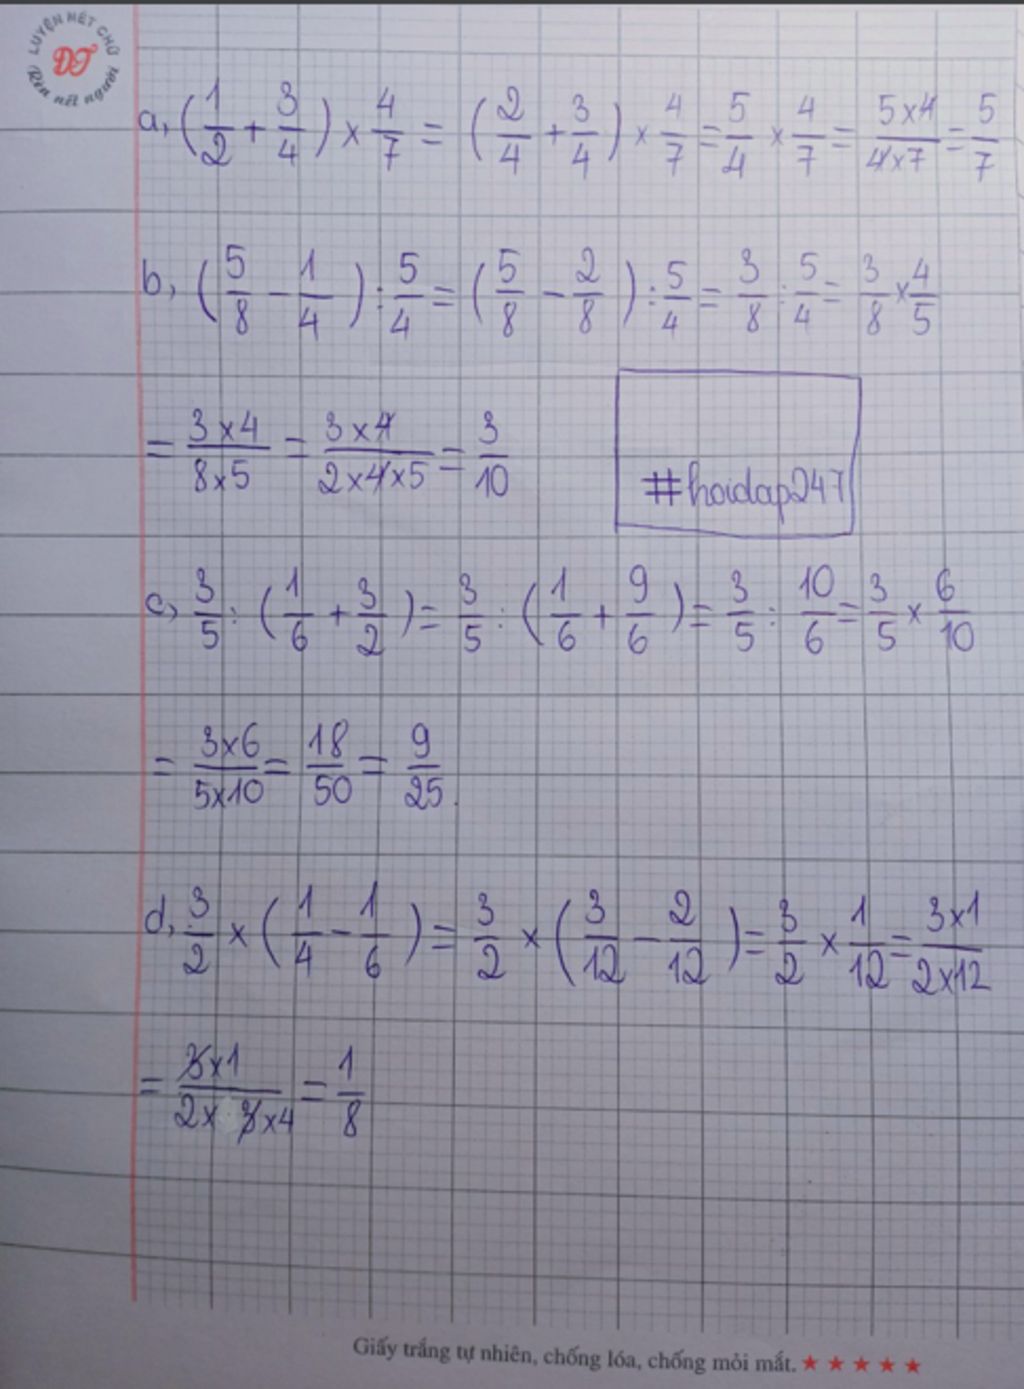 LUYỆN NÉT CHỮ
ĐT
Rèn nết người
a, (1/2 + 3/4) × 4/7 = (2/4 + 3/4) × 4/7 = 5/4 × 4/7 = 5×4/4×7 = 5/7
b, (5/8 - 1/4) : 5/4 = (5/8 - 2/8) : 5/4 = 3/8 : 5/4 = 3/8 × 4/5
= 3×4/8×5 = 3×4/2×4×5 = 3/10
#hoidap247
c, 3/5 : (1/6 + 3/2) = 3/5 : (1/6 + 9/6) = 3/5 : 10/6 = 3/5 × 6/10
= 3×6/5×10 = 18/50 = 9/25.
d, 3/2 × (1/4 - 1/6) = 3/2 × (3/12 - 2/12) = 3/2 × 1/12 = 3×1/2×12
= 3×1/2×3×4 = 1/8
Giấy trắng tự nhiên, chống lóa, chống mỏi mắt. ★ ★ ★ ★ ★